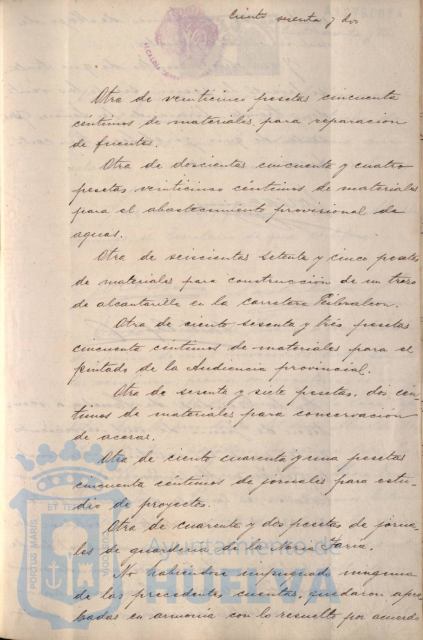 Ciento sesenta y dos
Otra de veinticinco pesetas cincuenta
céntimos de materiales para reparacion
de fuentes.
Otra de doscientas cincuenta y cuatro
pesetas veinticinco céntimos de materiales
para el abastecimiento provisional de
aguas.
Otra de seiscientas setenta y cinco pesetas
de materiales para construccion de un trozo
de alcantarilla en la carretera Gibraleon.
Otra de ciento sesenta y tres pesetas
cincuenta céntimos de materiales para el
pintado de la Audiencia provincial.
Otra de sesenta y siete pesetas, dos cén-
timos de materiales para conservación
de aceras.
Otra de ciento cuarenta y una pesetas
cincuenta céntimos de jornales para estu-
dio de proyectos.
Otra de cuarenta y dos pesetas de jorna-
les de guarderia de la
No habiéndose impugnado ninguna
de las precedentes cuentas, quedaron apro-
badas en armonía con lo resuelto por acuerdo
Ayuntamiento de
HUELVA
PORTUS MARIS
ET TE
CUSTODIA